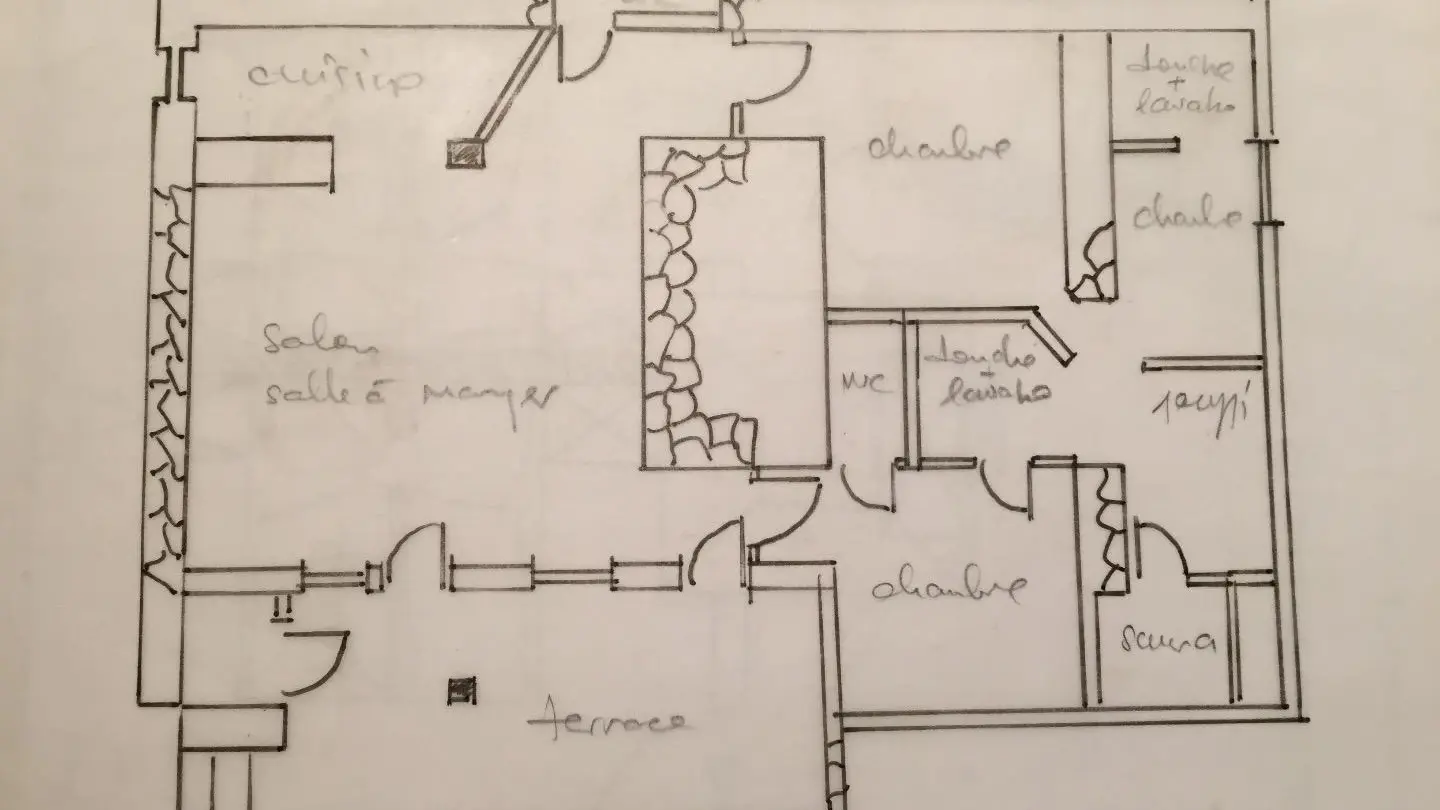 cuisine
douche
+
lavabo
chambre
chambre
salon
salle à manger
WC
douche
+
lavabo
jacuzzi
chambre
sauna
terrasse